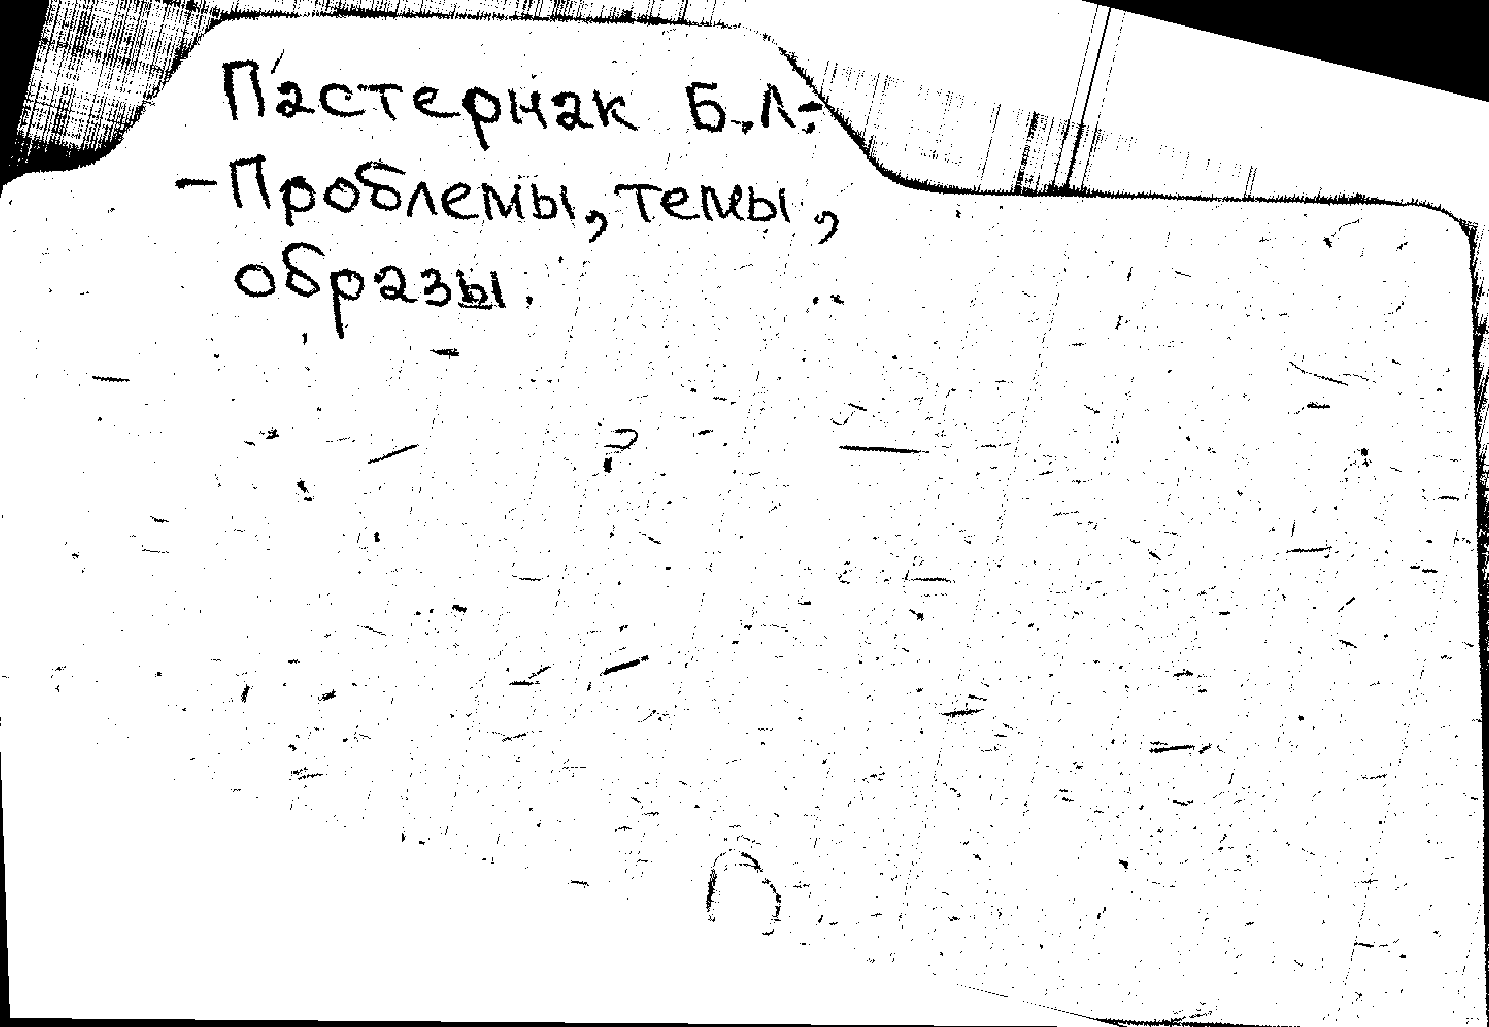 Пастернак Б.Л.:
– Проблемы, темы,
образы.